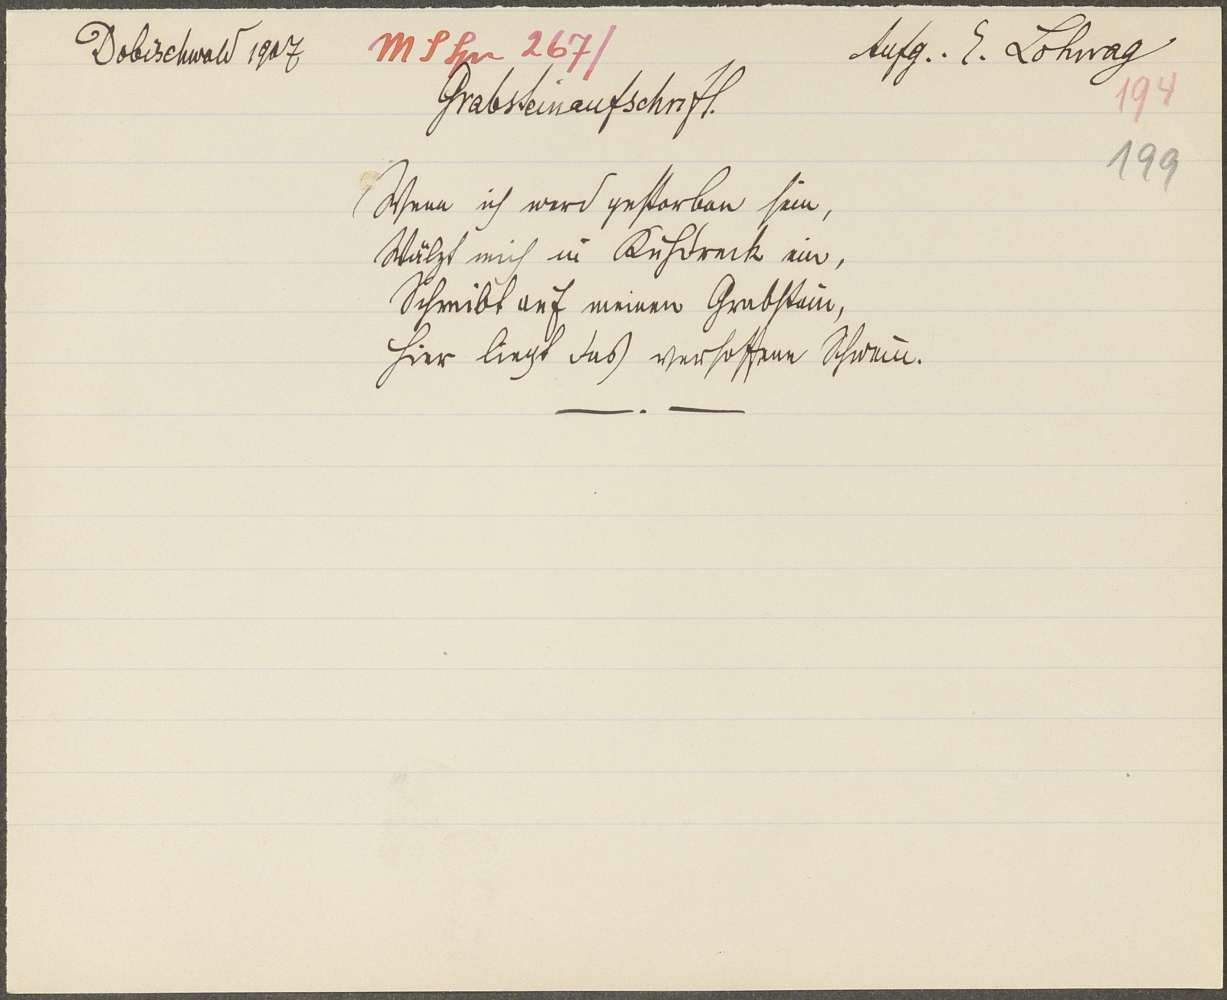 Dobischwald 1907 MS Spr 267/ Aufg.. E. Lohwag
194
Grabsteinaufschrift.
199
Wenn ich werd gestorben sein,
Wälzt mich in Kuhdreck ein,
Schreibt auf meinen Grabstein,
Hier liegt das versoffene Schwein.